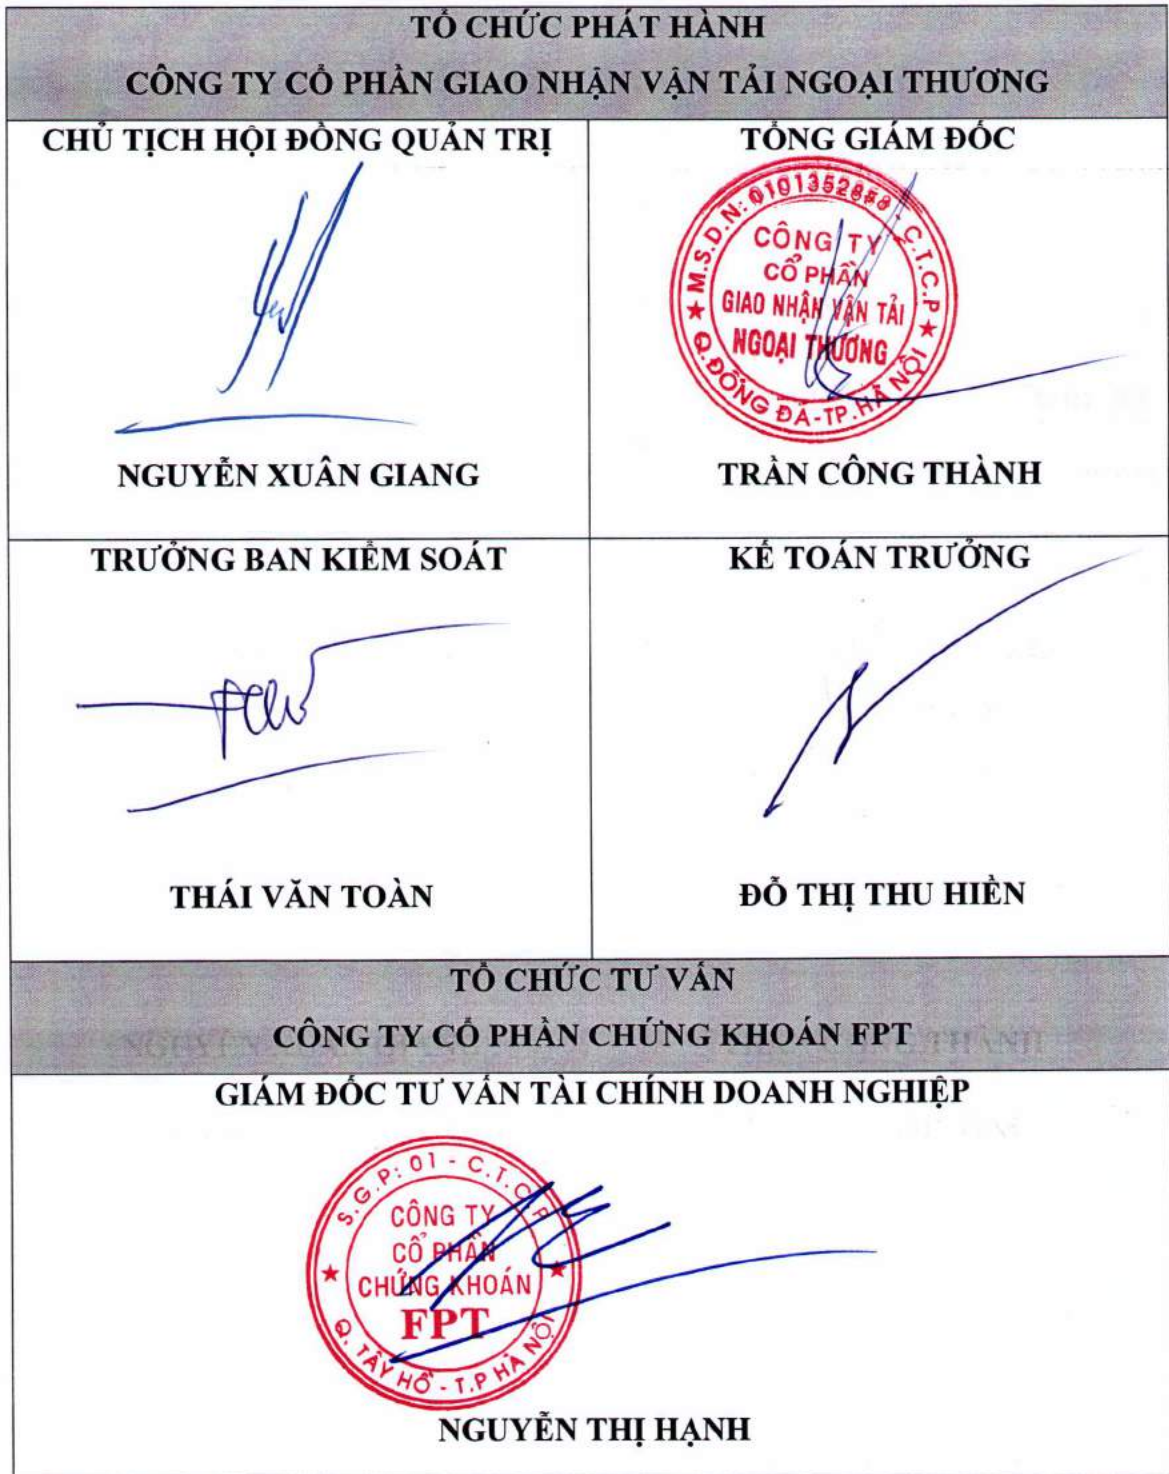 TỔ CHỨC PHÁT HÀNH
CÔNG TY CỔ PHẦN GIAO NHẬN VẬN TẢI NGOẠI THƯƠNG
CHỦ TỊCH HỘI ĐỒNG QUẢN TRỊ
NGUYỄN XUÂN GIANG
TỔNG GIÁM ĐỐC
M.S.D.N: - C.T.C.P
CÔNG TY
CỔ PHẦN
GIAO NHẬN VẬN TẢI
NGOẠI THƯƠNG
Q.ĐỐNG ĐÁ-TP.HÀ NỘI
TRẦN CÔNG THÀNH
TRƯỞNG BAN KIỂM SOÁT
THÁI VĂN TOÀN
KẾ TOÁN TRƯỞNG
ĐỖ THỊ THU HIỀN
TỔ CHỨC TƯ VẤN
CÔNG TY CỔ PHẦN CHỨNG KHOÁN FPT
GIÁM ĐỐC TƯ VẤN TÀI CHÍNH DOANH NGHIỆP
S.G.P: 01 - C.T.C.P
CÔNG TY
CỔ PHẦN
CHỨNG KHOÁN
FPT
Q. TÂY HỒ - T.P HÀ NỘI
NGUYỄN THỊ HẠNH